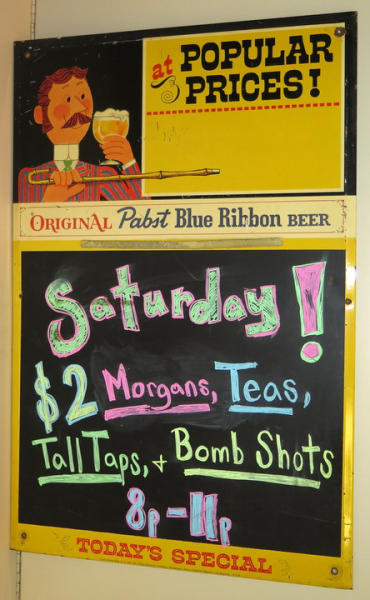 at POPULAR
PRICES!
ORIGINAL Pabst Blue Ribbon BEER
Saturday!
$2 Morgans, Teas,
Tall Taps, + Bomb Shots
8p-11p
TODAY'S SPECIAL